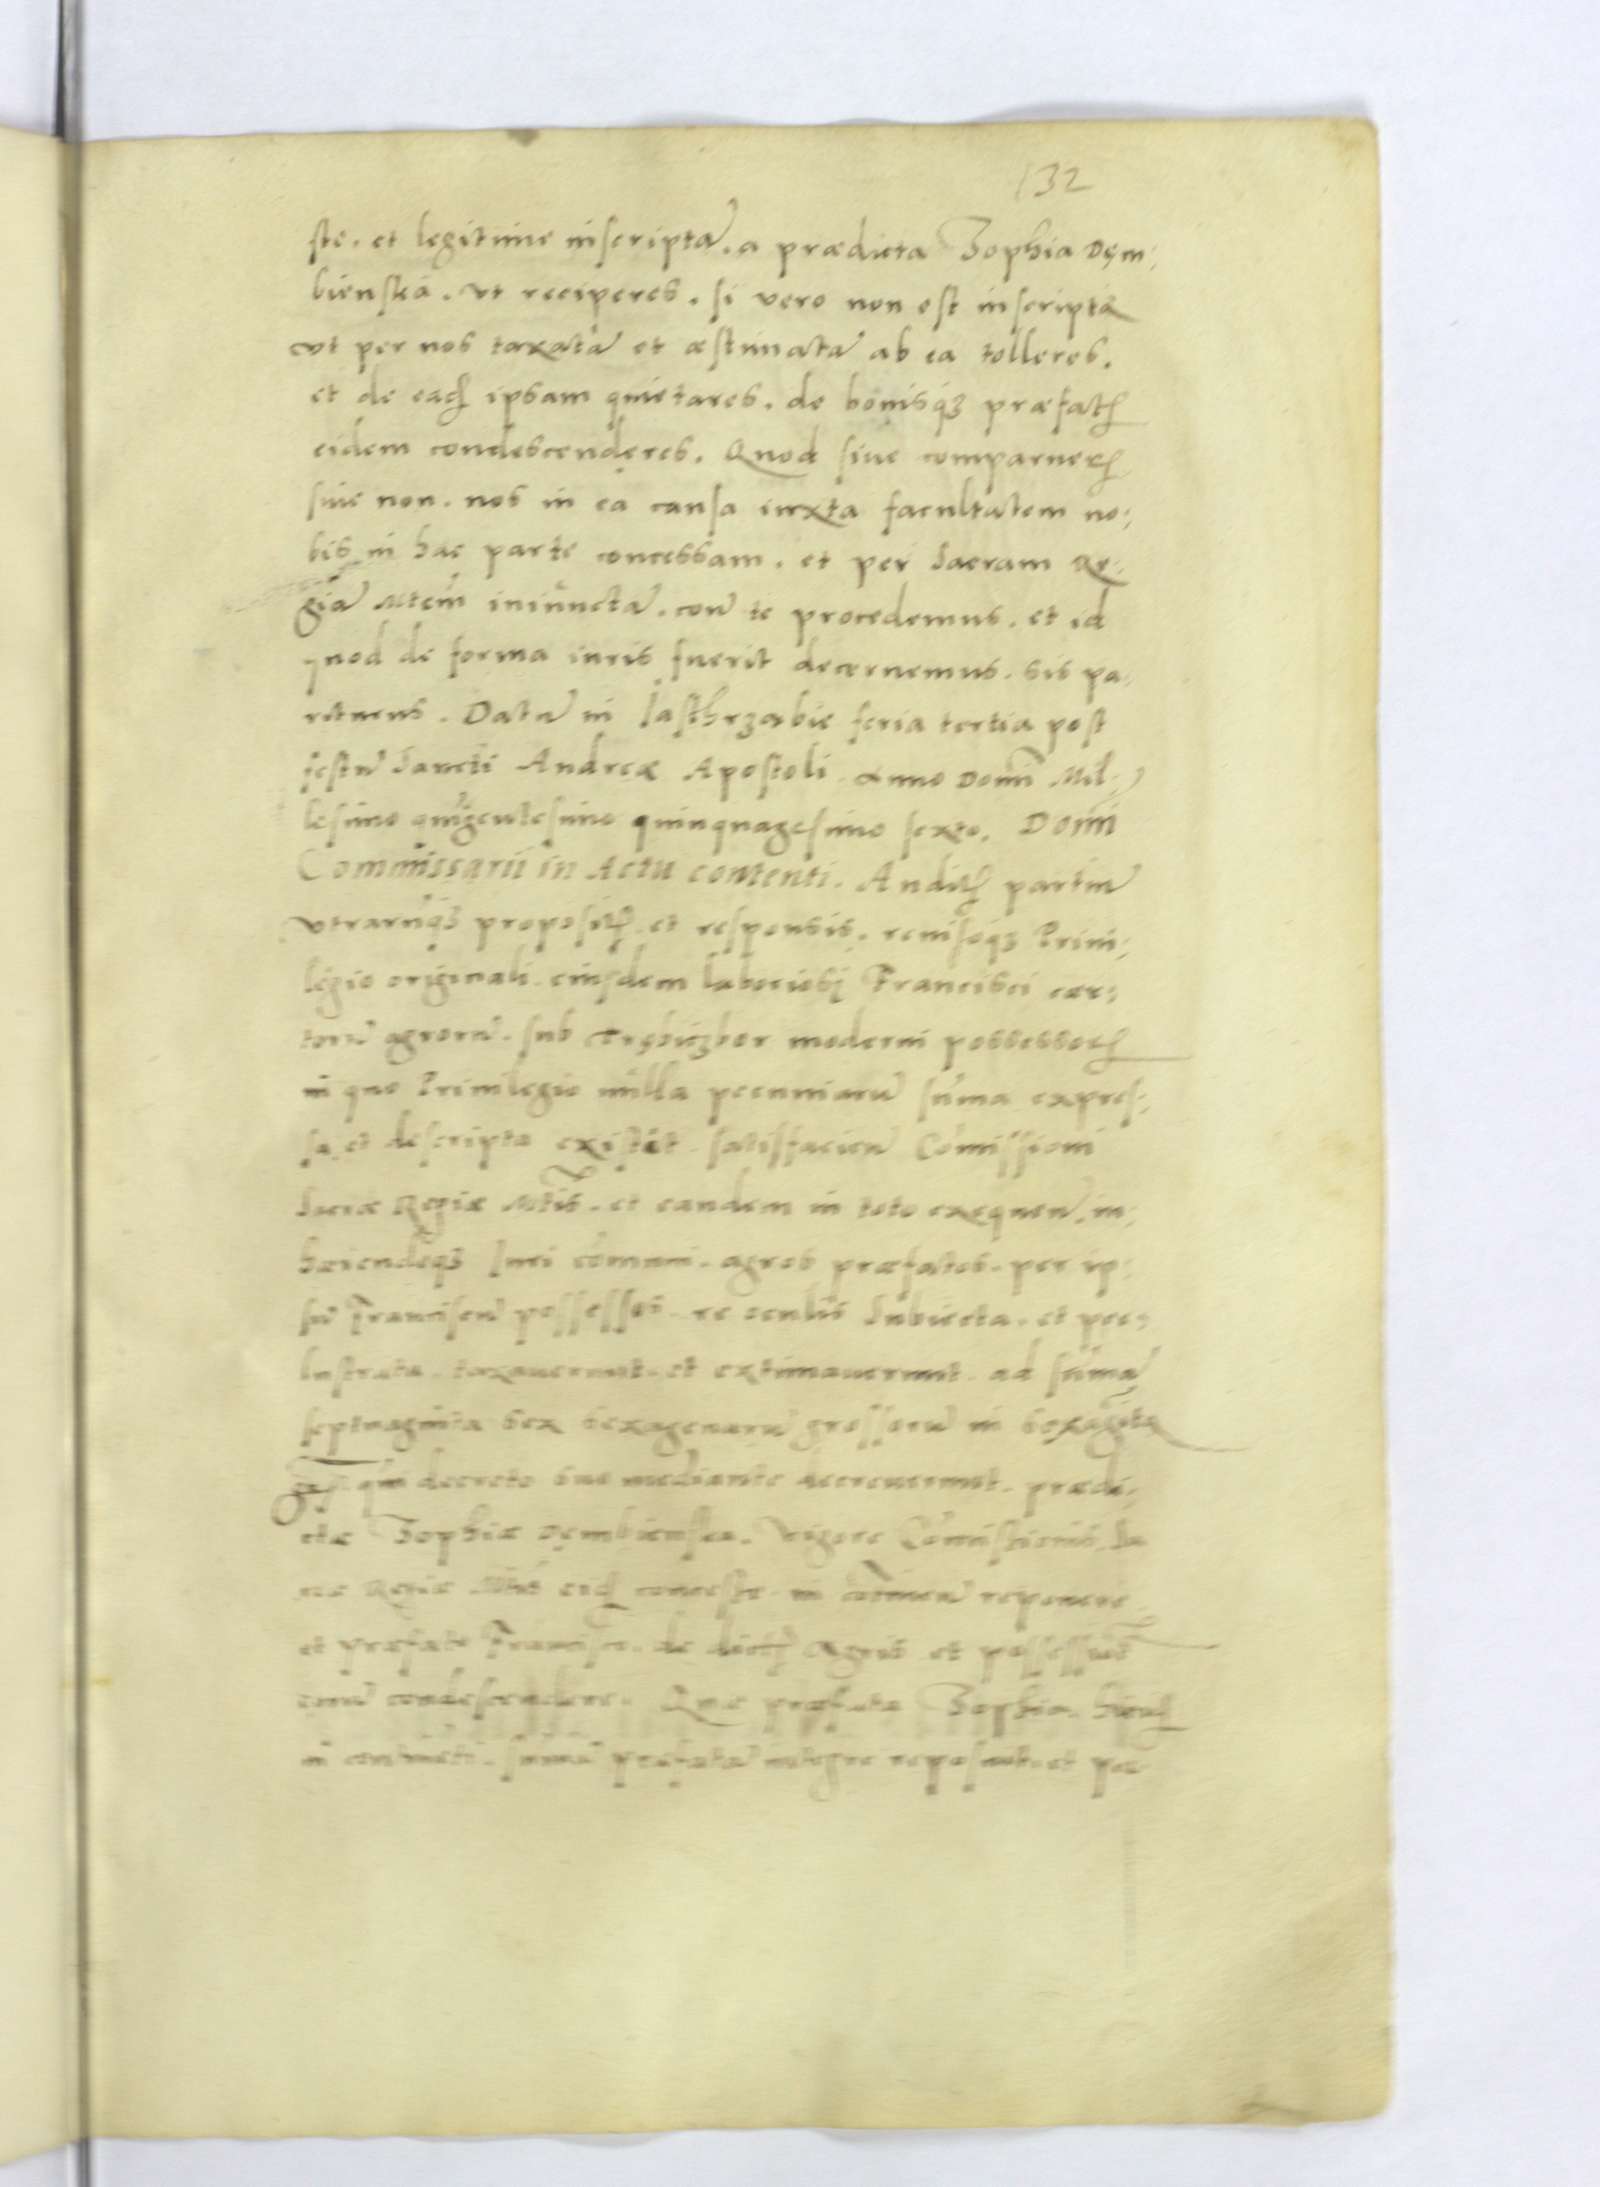 132
ste. et legitime inscripta. a prædicta Zophia Dęm:
bienska. vt reciperes. si vero non est inscripta
vt per nos taxata et æstimata ab ea tolleres.
et de ea ipsam quietares. de bonisq præfat
eidem condescenderes. Quod siue comparuer
siue non. nos in ea causa iuxta facultatem no:
bis in hac parte concessam. et per Sacram Re:
gia Mtem iniuncta. con te procedemus. et id
quod de forma iuris fuerit decernemus. sis pa:
riturus. Data in Jasthrzabie feria tertia post
festu Sancti Andreæ Apostoli. Anno Domi Mil:
lesimo quigentesimo quinquagesimo sexto. Domi
Commissarii in Actu contenti. Audit partiu
vtraruq proposit et responsis. reuisoq Priui:
legio originali. eiusdem laboriosi Francisci cer:
toru agroru. sub moderni possessor
in quo Priuilegio nulla pecuniaru suma expres:
sa et descripta existit. satisfacien Comissioni
Sacræ Regiæ Mtis. et eandem in toto exequen. in:
hæriendoq Juri comuni. agros præfatos. per ip:
su Franciscu possessos. re oculis Subiecta. et per:
lustrata. taxauerunt. et extimauerunt. ad suma
septuaginta sex sexagenaru grossoru in sexagita
qm decreto suo mediante decreuerunt. prædi:
ctæ Zophiæ Dęmbienska. vigore Comissionis Sa
cræ Regiæ Mtis eid concesse in reponere
et præfato Francisco. de dict Agris et possessioe
earu condescendere. Quæ præfata Zophia.
in continenti. suma præfata integre reposuit. et per